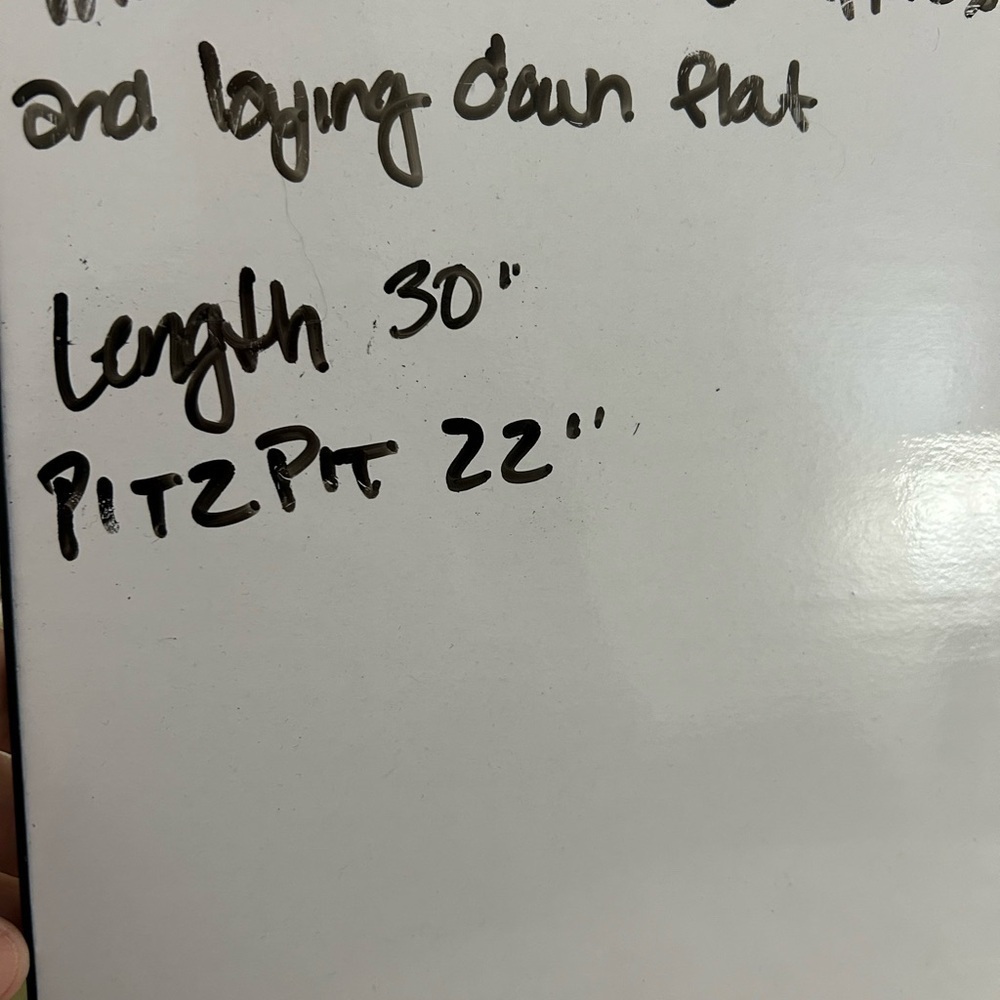 and laying down flat
Length 30"
PIT2PIT 22"